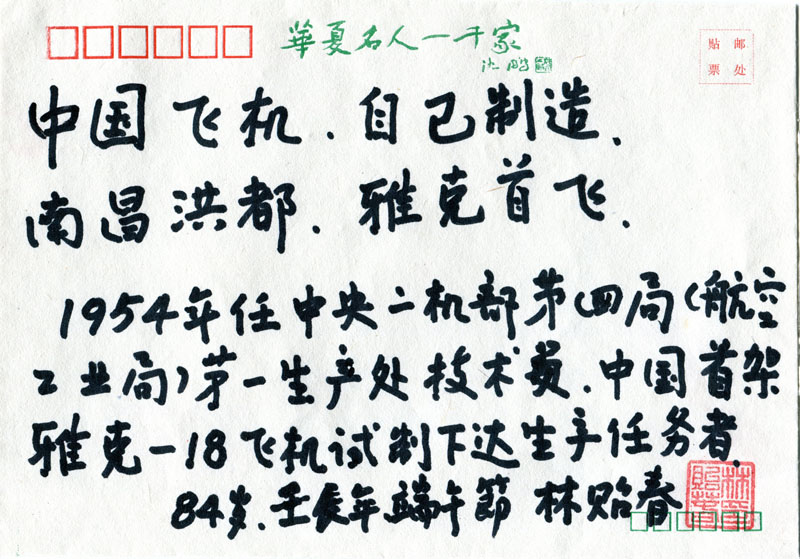 華夏名人一千家
沈鹏
贴邮
票处
中国飞机.自己制造.
南昌洪都.雅克首飞.
1954年任中央二机部第四局(航空
工业局)第一生产处技术员.中国首架
雅克-18飞机试制下达生产任务者.
84岁.壬辰年端午節 林贻春